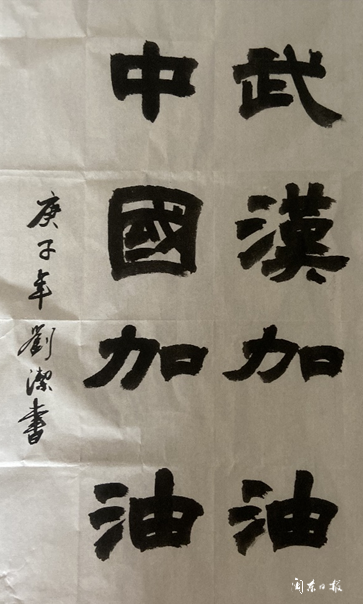 武漢加油
中國加油
庚子年劉潔書
闽东日报